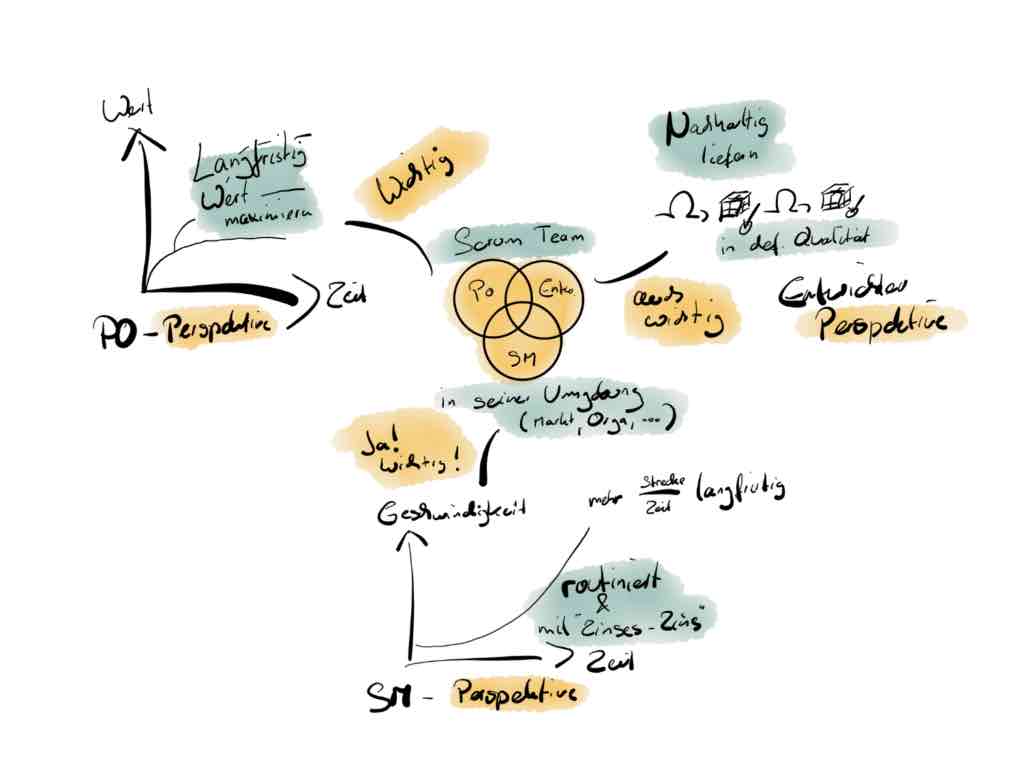 Wert
Langfristig
Wert
maximieren
Zeit
PO - Perspektive
Wichtig
Nachhaltig
liefern
in def. Qualität
Entwickler
Perspektive
auch
wichtig
Scrum Team
PO
Entw.
SM
in seiner Umgebung
(Markt, Orga, ...)
Ja!
wichtig!
Geschwindigkeit
mehr Strecke
Zeit
langfristig
routiniert
&
mit "Zinses-Zins"
Zeit
SM - Perspektive